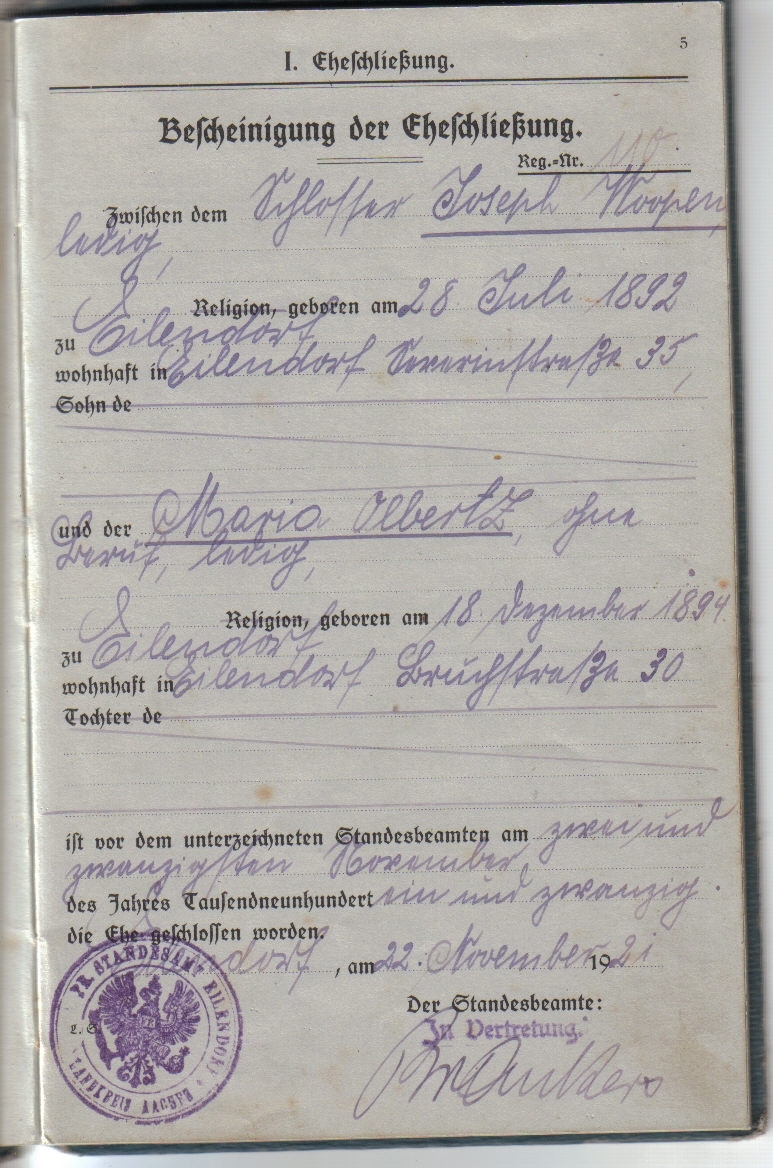 5
I. Eheschließung.
Bescheinigung der Eheschließung.
Reg.-Nr. 110
Zwischen dem Schlosser Joseph Koopen,
ledig,
Religion, geboren am 28 Juli 1892
zu Eilendorf
wohnhaft in Eilendorf Severinstraße 35,
Sohn de
und der Maria Olbertz, ohne
Beruf, ledig,
Religion, geboren am 18. Dezember 1894.
zu Eilendorf
wohnhaft in Eilendorf Bruchstraße 30
Tochter de
ist vor dem unterzeichneten Standesbeamten am zwei und
zwanzigsten November
des Jahres Tausendneunhundert ein und zwanzig.
die Ehe geschlossen worden.
Eilendorf, am 22. November 1921
Der Standesbeamte:
In Vertretung.
L. S.
PR. STANDESAMT EILENDORF
LANDKREIS AACHEN